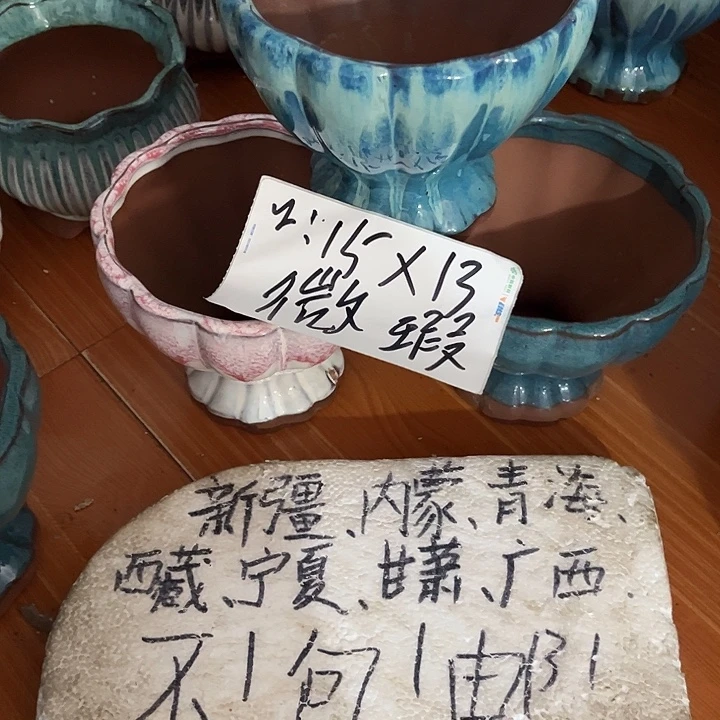 2:15×13
微瑕
新疆、内蒙、青海、
西藏、宁夏、甘肃、广西.
不包邮